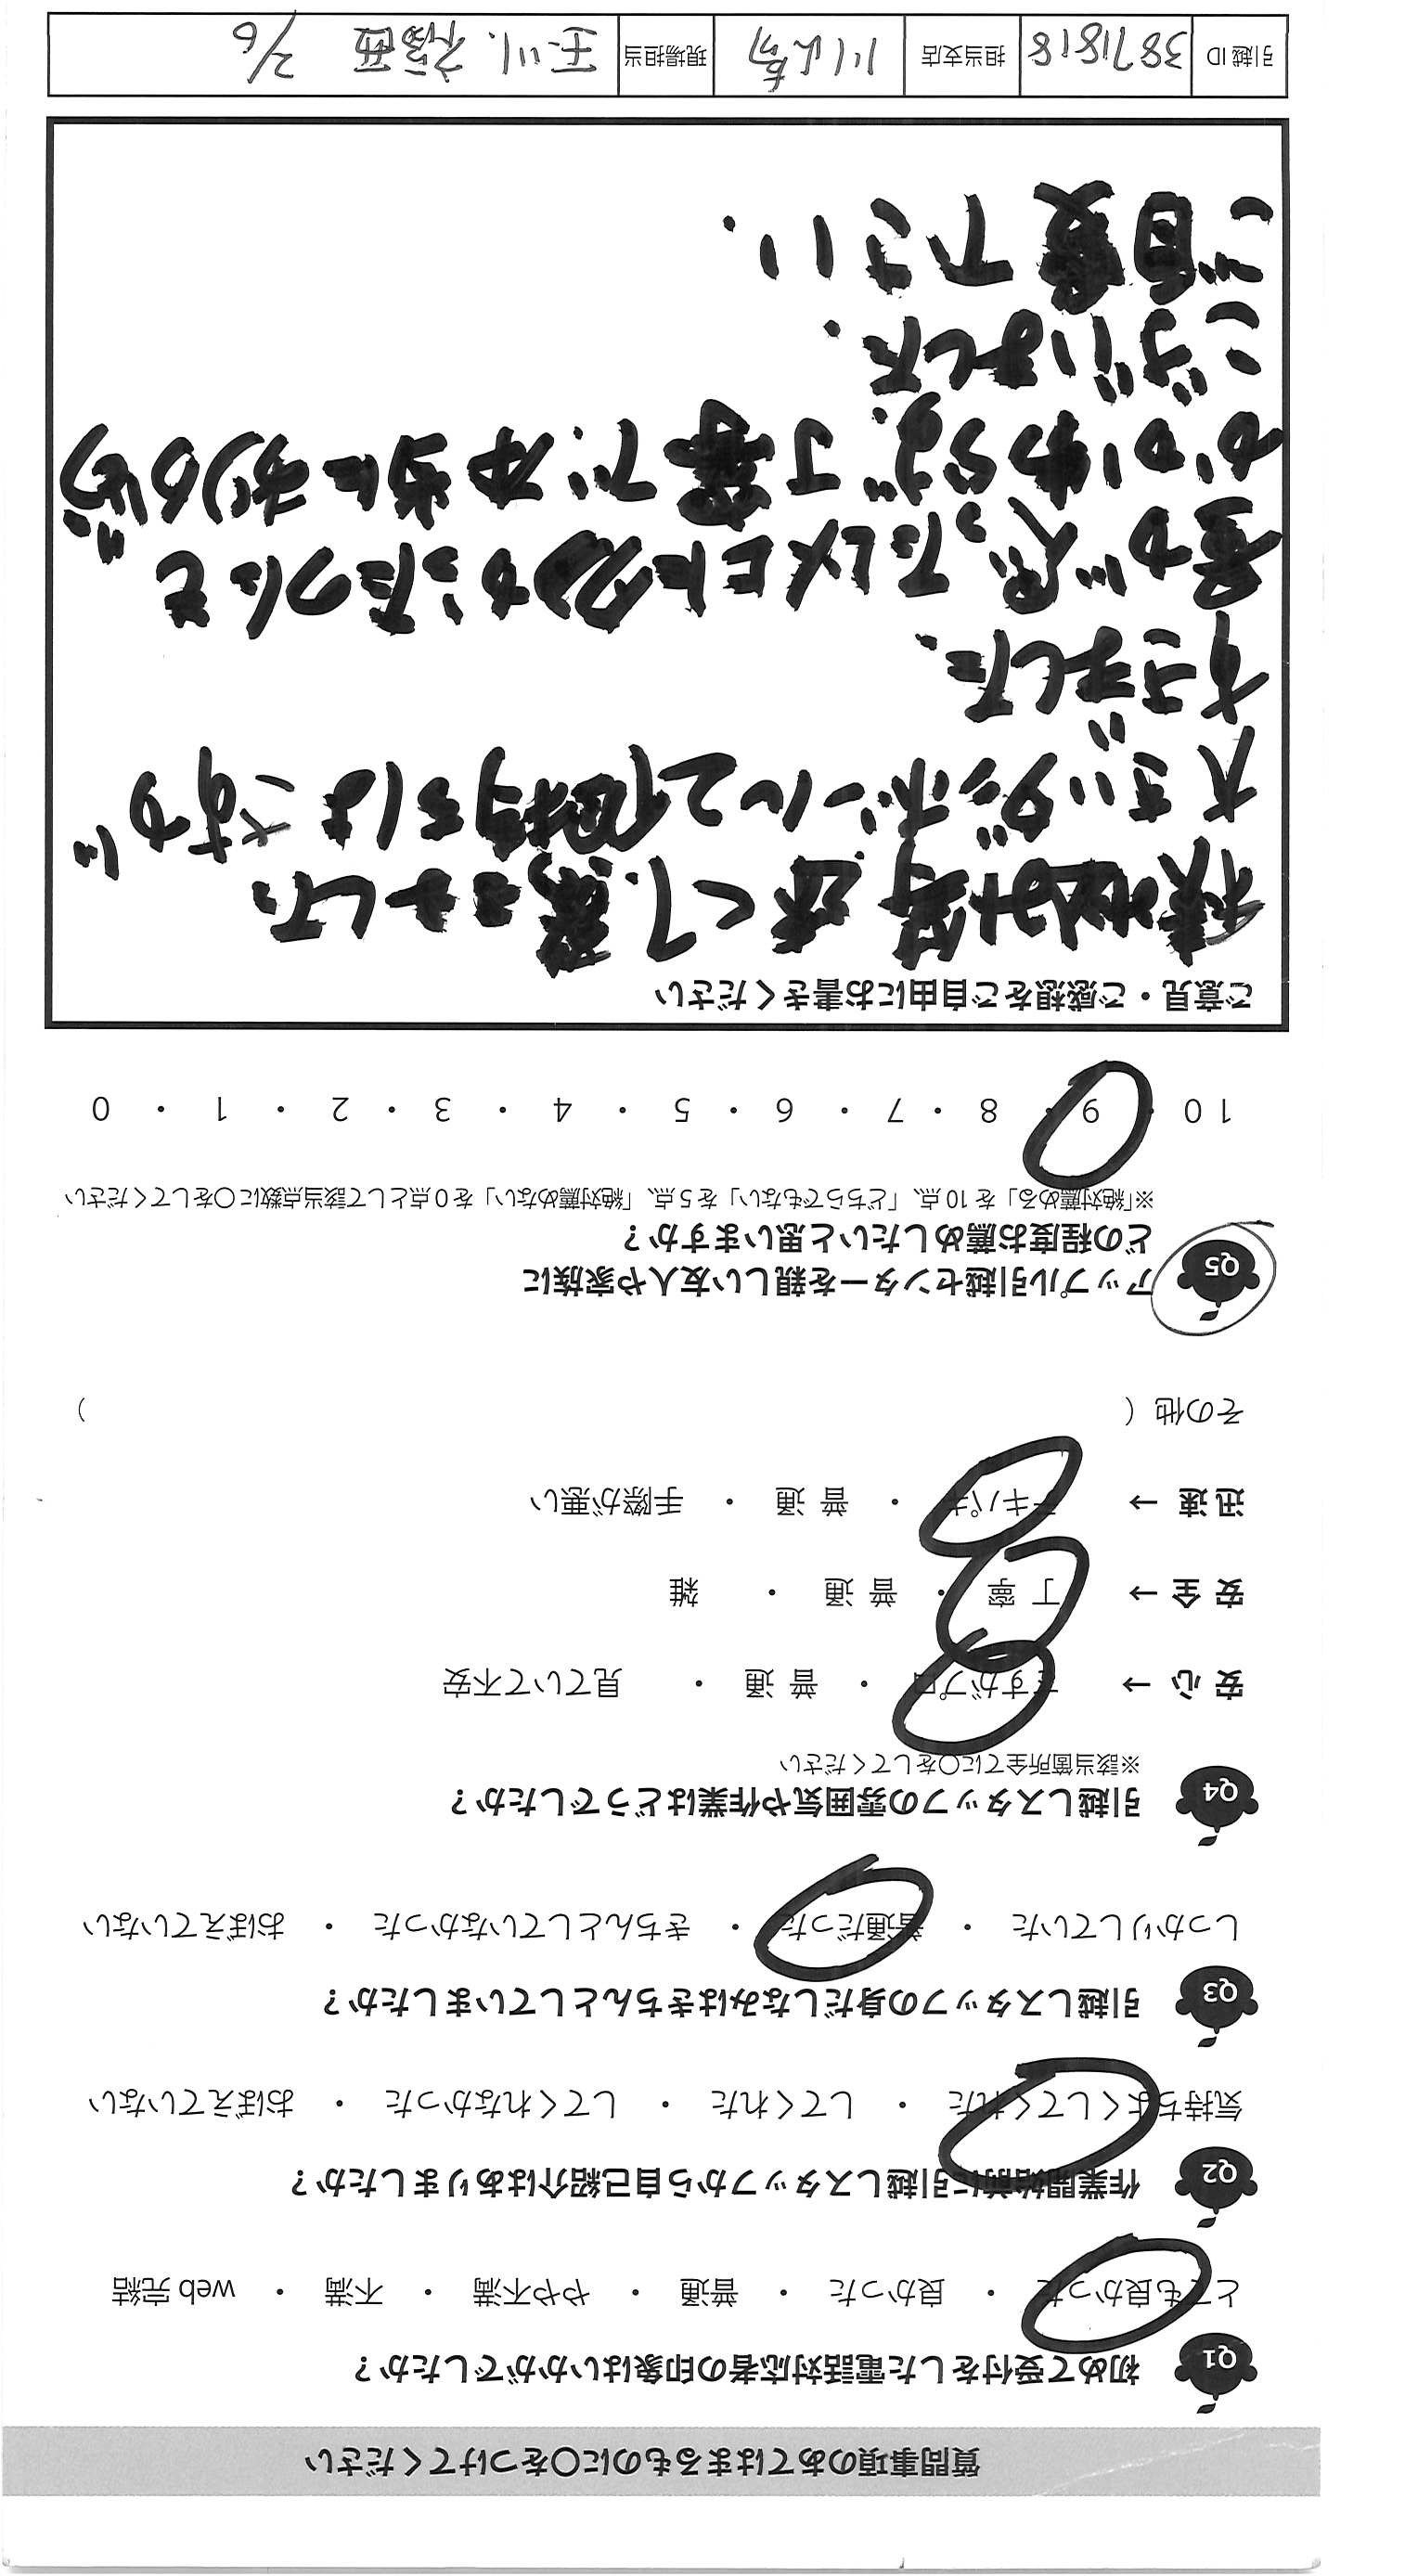 質問事項のあてはまるものに〇をつけてください
Q1 初めて受付をした電話対応者の印象はいかがでしたか？
とても良かった ・ 良かった ・ 普通 ・ やや不満 ・ 不満 ・ web 完結
Q2 作業開始前に引越しスタッフから自己紹介はありましたか？
気持ちよくしてくれた ・ してくれた ・ してくれなかった ・ おぼえていない
Q3 引越しスタッフの身だしなみはきちんとしていましたか？
しっかりしていた ・ 普通だった ・ きちんとしていなかった ・ おぼえていない
Q4 引越しスタッフの雰囲気や作業はどうでしたか？
※該当箇所全てに〇をしてください
安 心 → さすがプロ ・ 普 通 ・ 見ていて不安
安 全 → 丁 寧 ・ 普 通 ・ 雑
迅 速 → テキパキ ・ 普 通 ・ 手際が悪い
その他（ ）
Q5 アップル引越センターを親しい友人や家族に
どの程度お薦めしたいと思いますか？
※「絶対薦める」を 10 点、「どちらでもない」を 5 点、「絶対薦めない」を 0 点として該当点数に〇をしてください
10 ・ 9 ・ 8 ・ 7 ・ 6 ・ 5 ・ 4 ・ 3 ・ 2 ・ 1 ・ 0
ご意見・ご感想をご自由にお書きください
くて
大きいダンボール2個
ました。
かかわらず、丁寧で、本当にありがとう
ございました。
ご自愛下さい。
引越 ID 3871818 担当支店 現場担当 玉川、 2/6